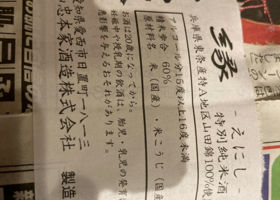 縁
－えにし－
特別純米酒
兵庫県東条産特A地区山田錦100%使
アルコール分15度以上16度未満
精米歩合 60%
原材料名 米(国産)・米こうじ(国産
お酒は20歳になってから。
妊娠中や授乳期の飲酒は、胎児・乳児の発育
悪影響を与えるおそれがあります。
愛知県愛西市日置町一八一三
忠本家酒造株式会社 製造